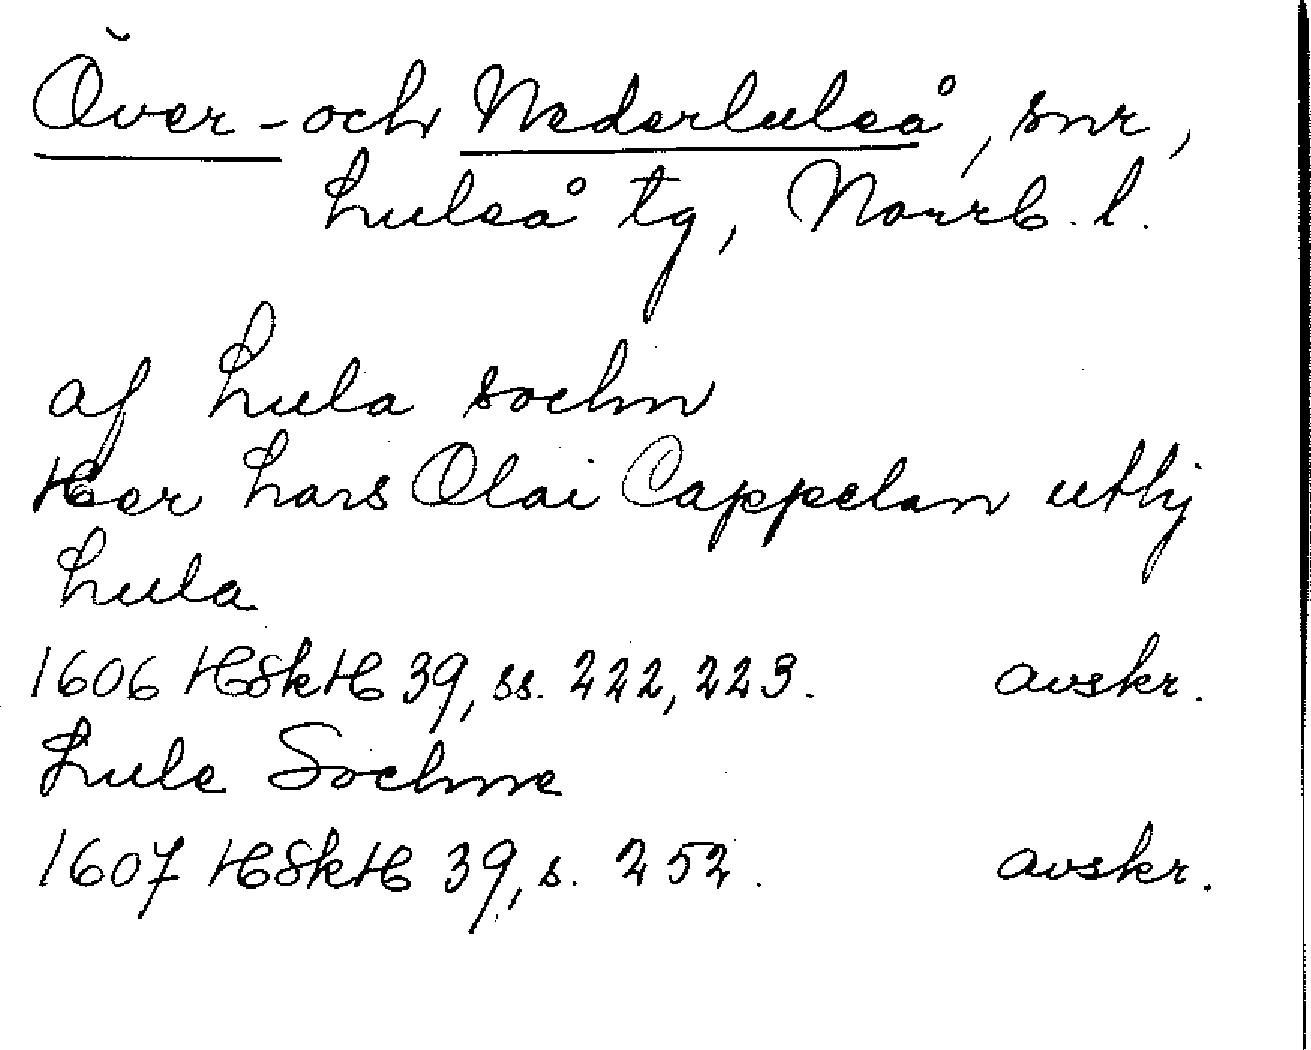 Över- och Nederluleå, snr,
Luleå tg, Norrb. l.
af Lula sochn
Her Lars Olai Cappelan uthj
Lula
1606 HSkH 39, ss. 222, 223. avskr.
Lule Sochne
1607 HSkH 39, s. 252. avskr.